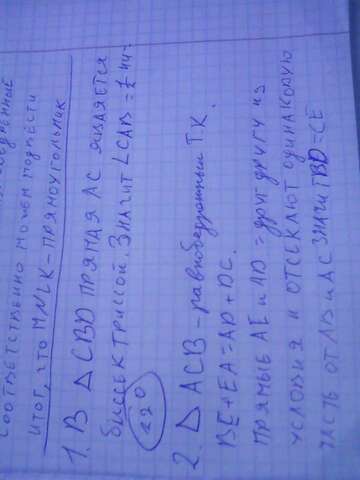 соответственно можем подвести
итог, что MNLK - прямоугольник
1. В △ CBD прямая AC является
биссектриссой. Значит ∠CAB = ½ 44=
22°
2. △ ACB - равнобедренный т.к.
BE+EA=AD+DC.
прямые AE и AD = друг другу из
условия и отсекают одинаковую
часть от AB и AC значит BD=CE